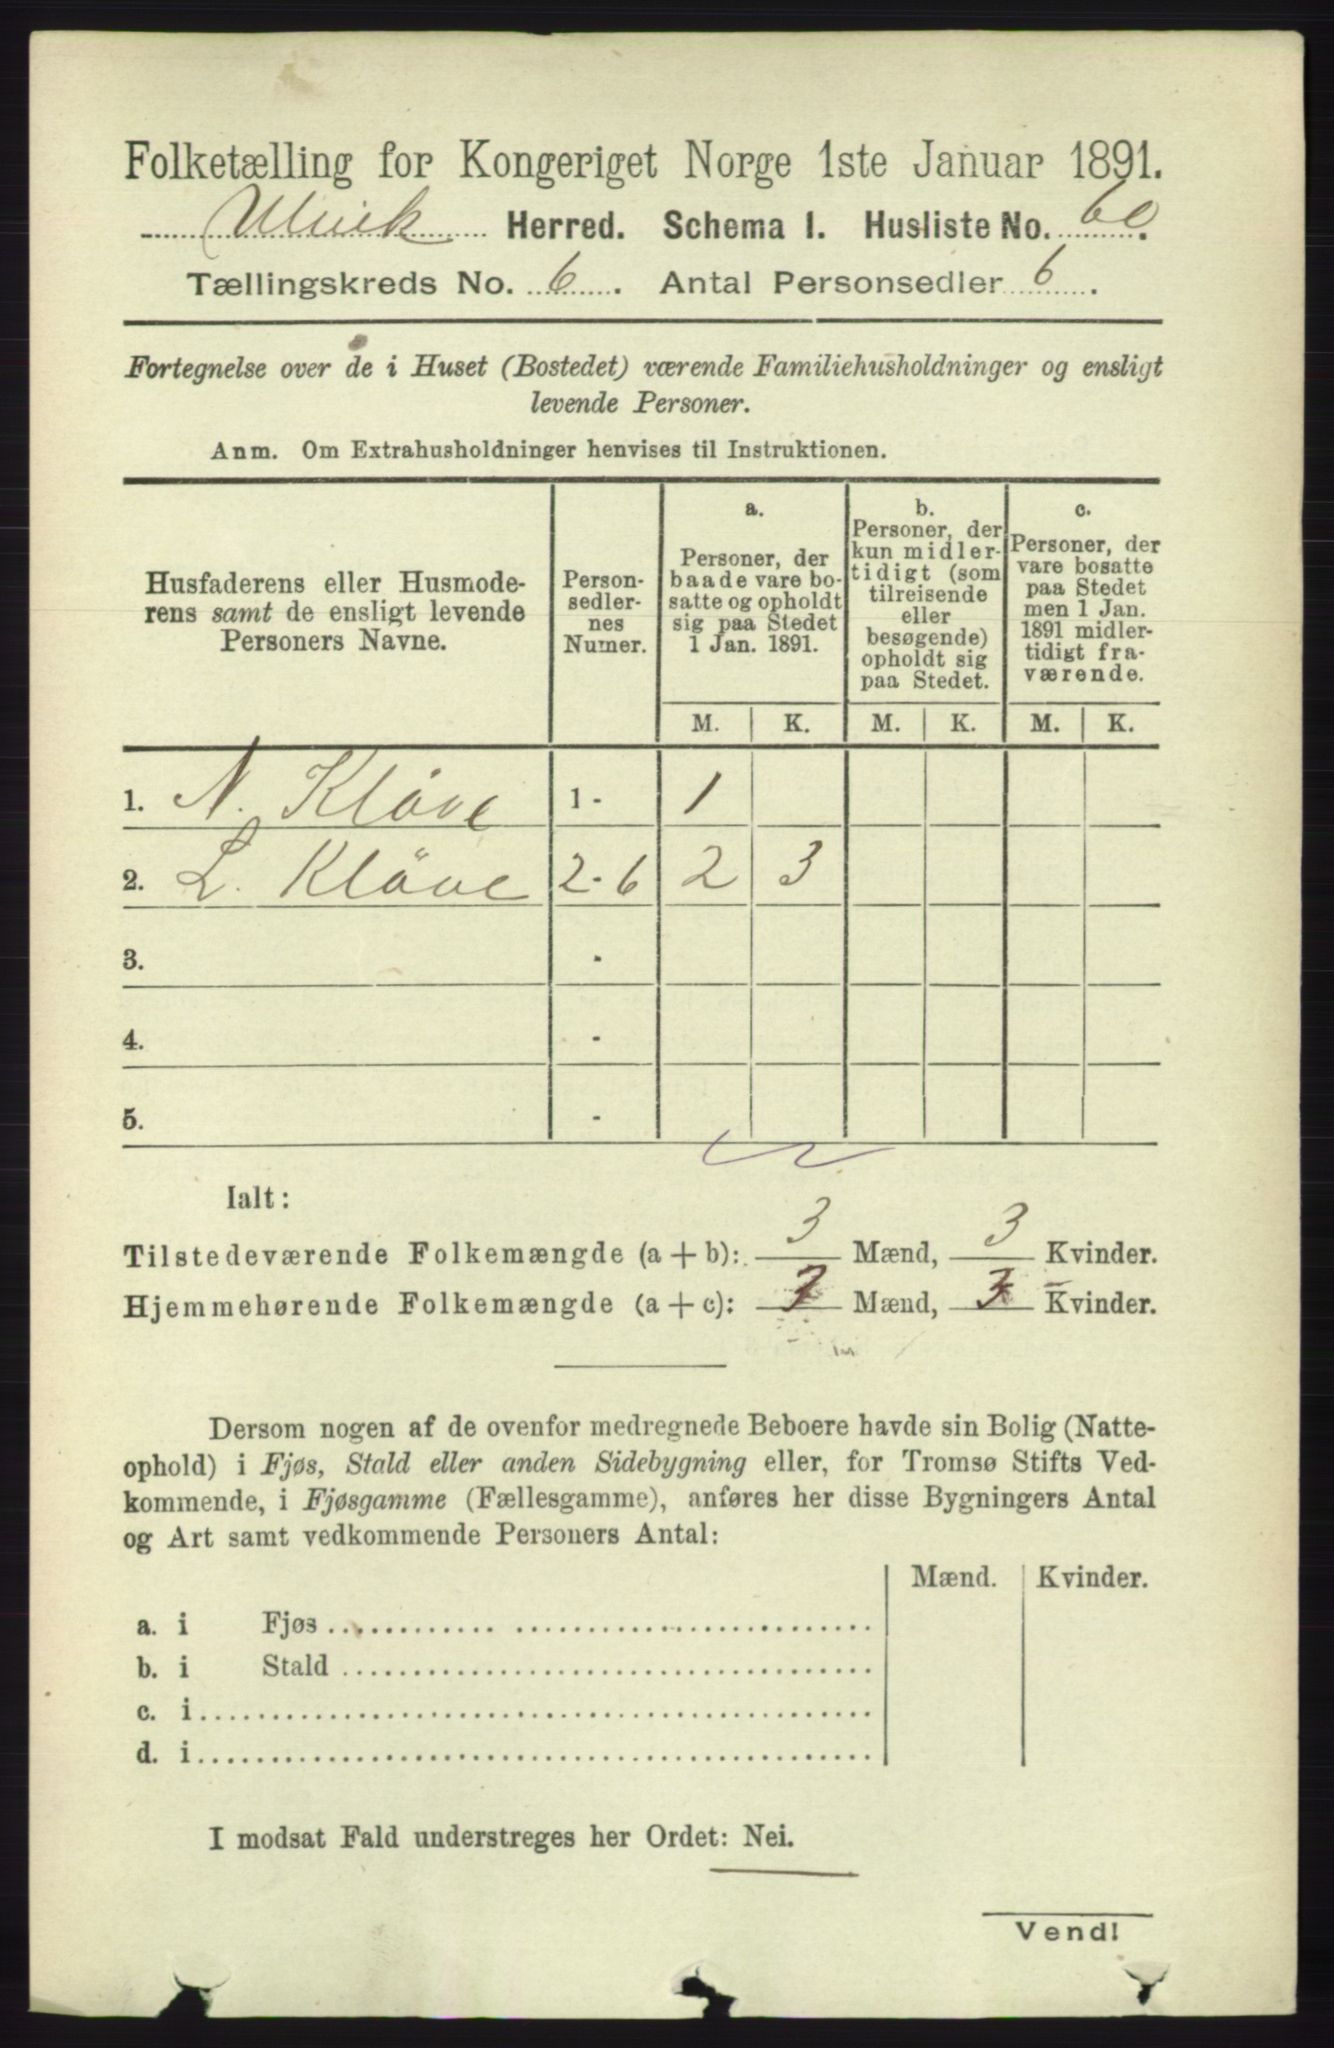 Folketælling for Kongeriget Norge 1ste Januar 1891.
Ulvik Herred. Schema I. Husliste No. 60.
Tællingskreds No. 6. Antal Personsedler 6.
Fortegnelse over de i Huset (Bostedet) værende Familiehusholdninger og ensligt
levende Personer.
Anm. Om Extrahusholdninger henvises til Instruktionen.
Husfaderens eller Husmode-
rens samt de ensligt levende
Personers Navne.
Person-
sedler-
nes
Numer.
a.
Personer, der
baade vare bo-
satte og opholdt
sig paa Stedet
1 Jan. 1891.
b.
Personer, der
kun midler-
tidigt (som
tilreisende
eller
besøgende)
opholdt sig
paa Stedet.
c.
Personer, der
vare bosatte
paa Stedet
men 1 Jan.
1891 midler-
tidigt fra-
værende.
M. K. M. K. M. K.
1. N. Kløve 1 - 1
2. L. Kløve 2 - 6 2 3
3. -
4. -
5. -
Ialt:
Tilstedeværende Folkemængde (a + b): 3 Mænd, 3 Kvinder.
Hjemmehørende Folkemængde (a + c): 3 Mænd, 3 Kvinder.
Dersom nogen af de ovenfor medregnede Beboere havde sin Bolig (Natte-
ophold) i Fjøs, Stald eller anden Sidebygning eller, for Tromsø Stifts Ved-
kommende, i Fjøsgamme (Fællesgamme), anføres her disse Bygningers Antal
og Art samt vedkommende Personers Antal:
Mænd. Kvinder.
a. i Fjøs
b. i Stald
c. i
d. i
I modsat Fald understreges her Ordet: Nei.
Vend!